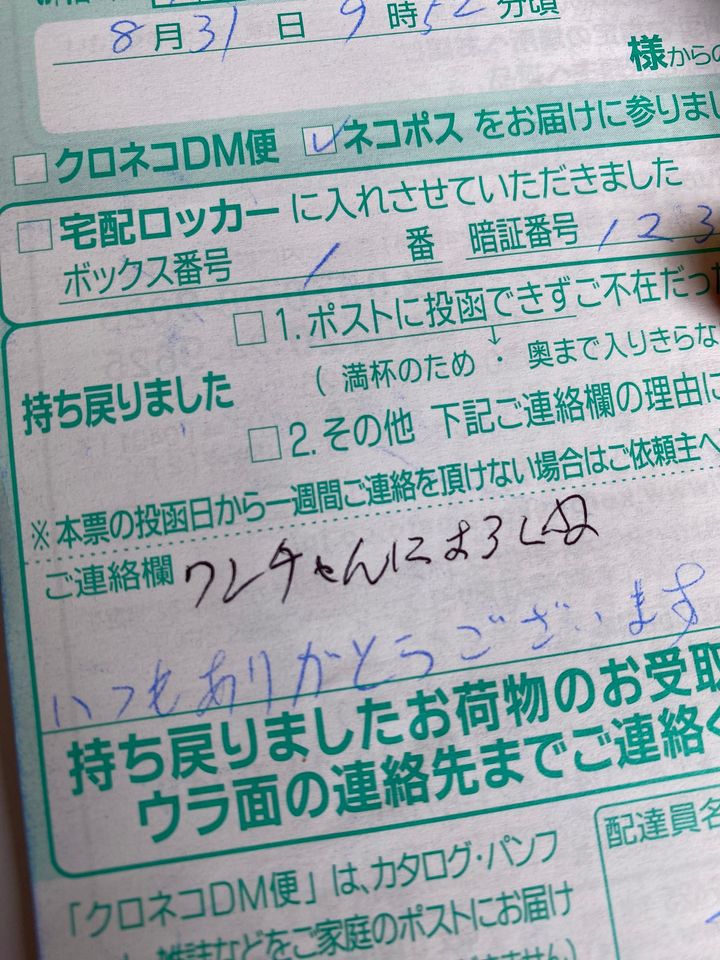 8月31日 9時52分頃
様からの
クロネコDM便 ✓ネコポス をお届けに参りまし
宅配ロッカーに入れさせていただきました
ボックス番号 1 番 暗証番号 123
1. ポストに投函できずご不在だっ
(満杯のため ・ 奥まで入りきらな
持ち戻りました
2. その他 下記ご連絡欄の理由に
※本票の投函日から一週間ご連絡を頂けない場合はご依頼主へ
ご連絡欄 ワンチャんによろしぬ
いつもありがとうございます
持ち戻りましたお荷物のお受取
ウラ面の連絡先までご連絡く
配達員名
「クロネコDM便」は、カタログ・パンフ
雑誌などをご家庭のポストにお届け